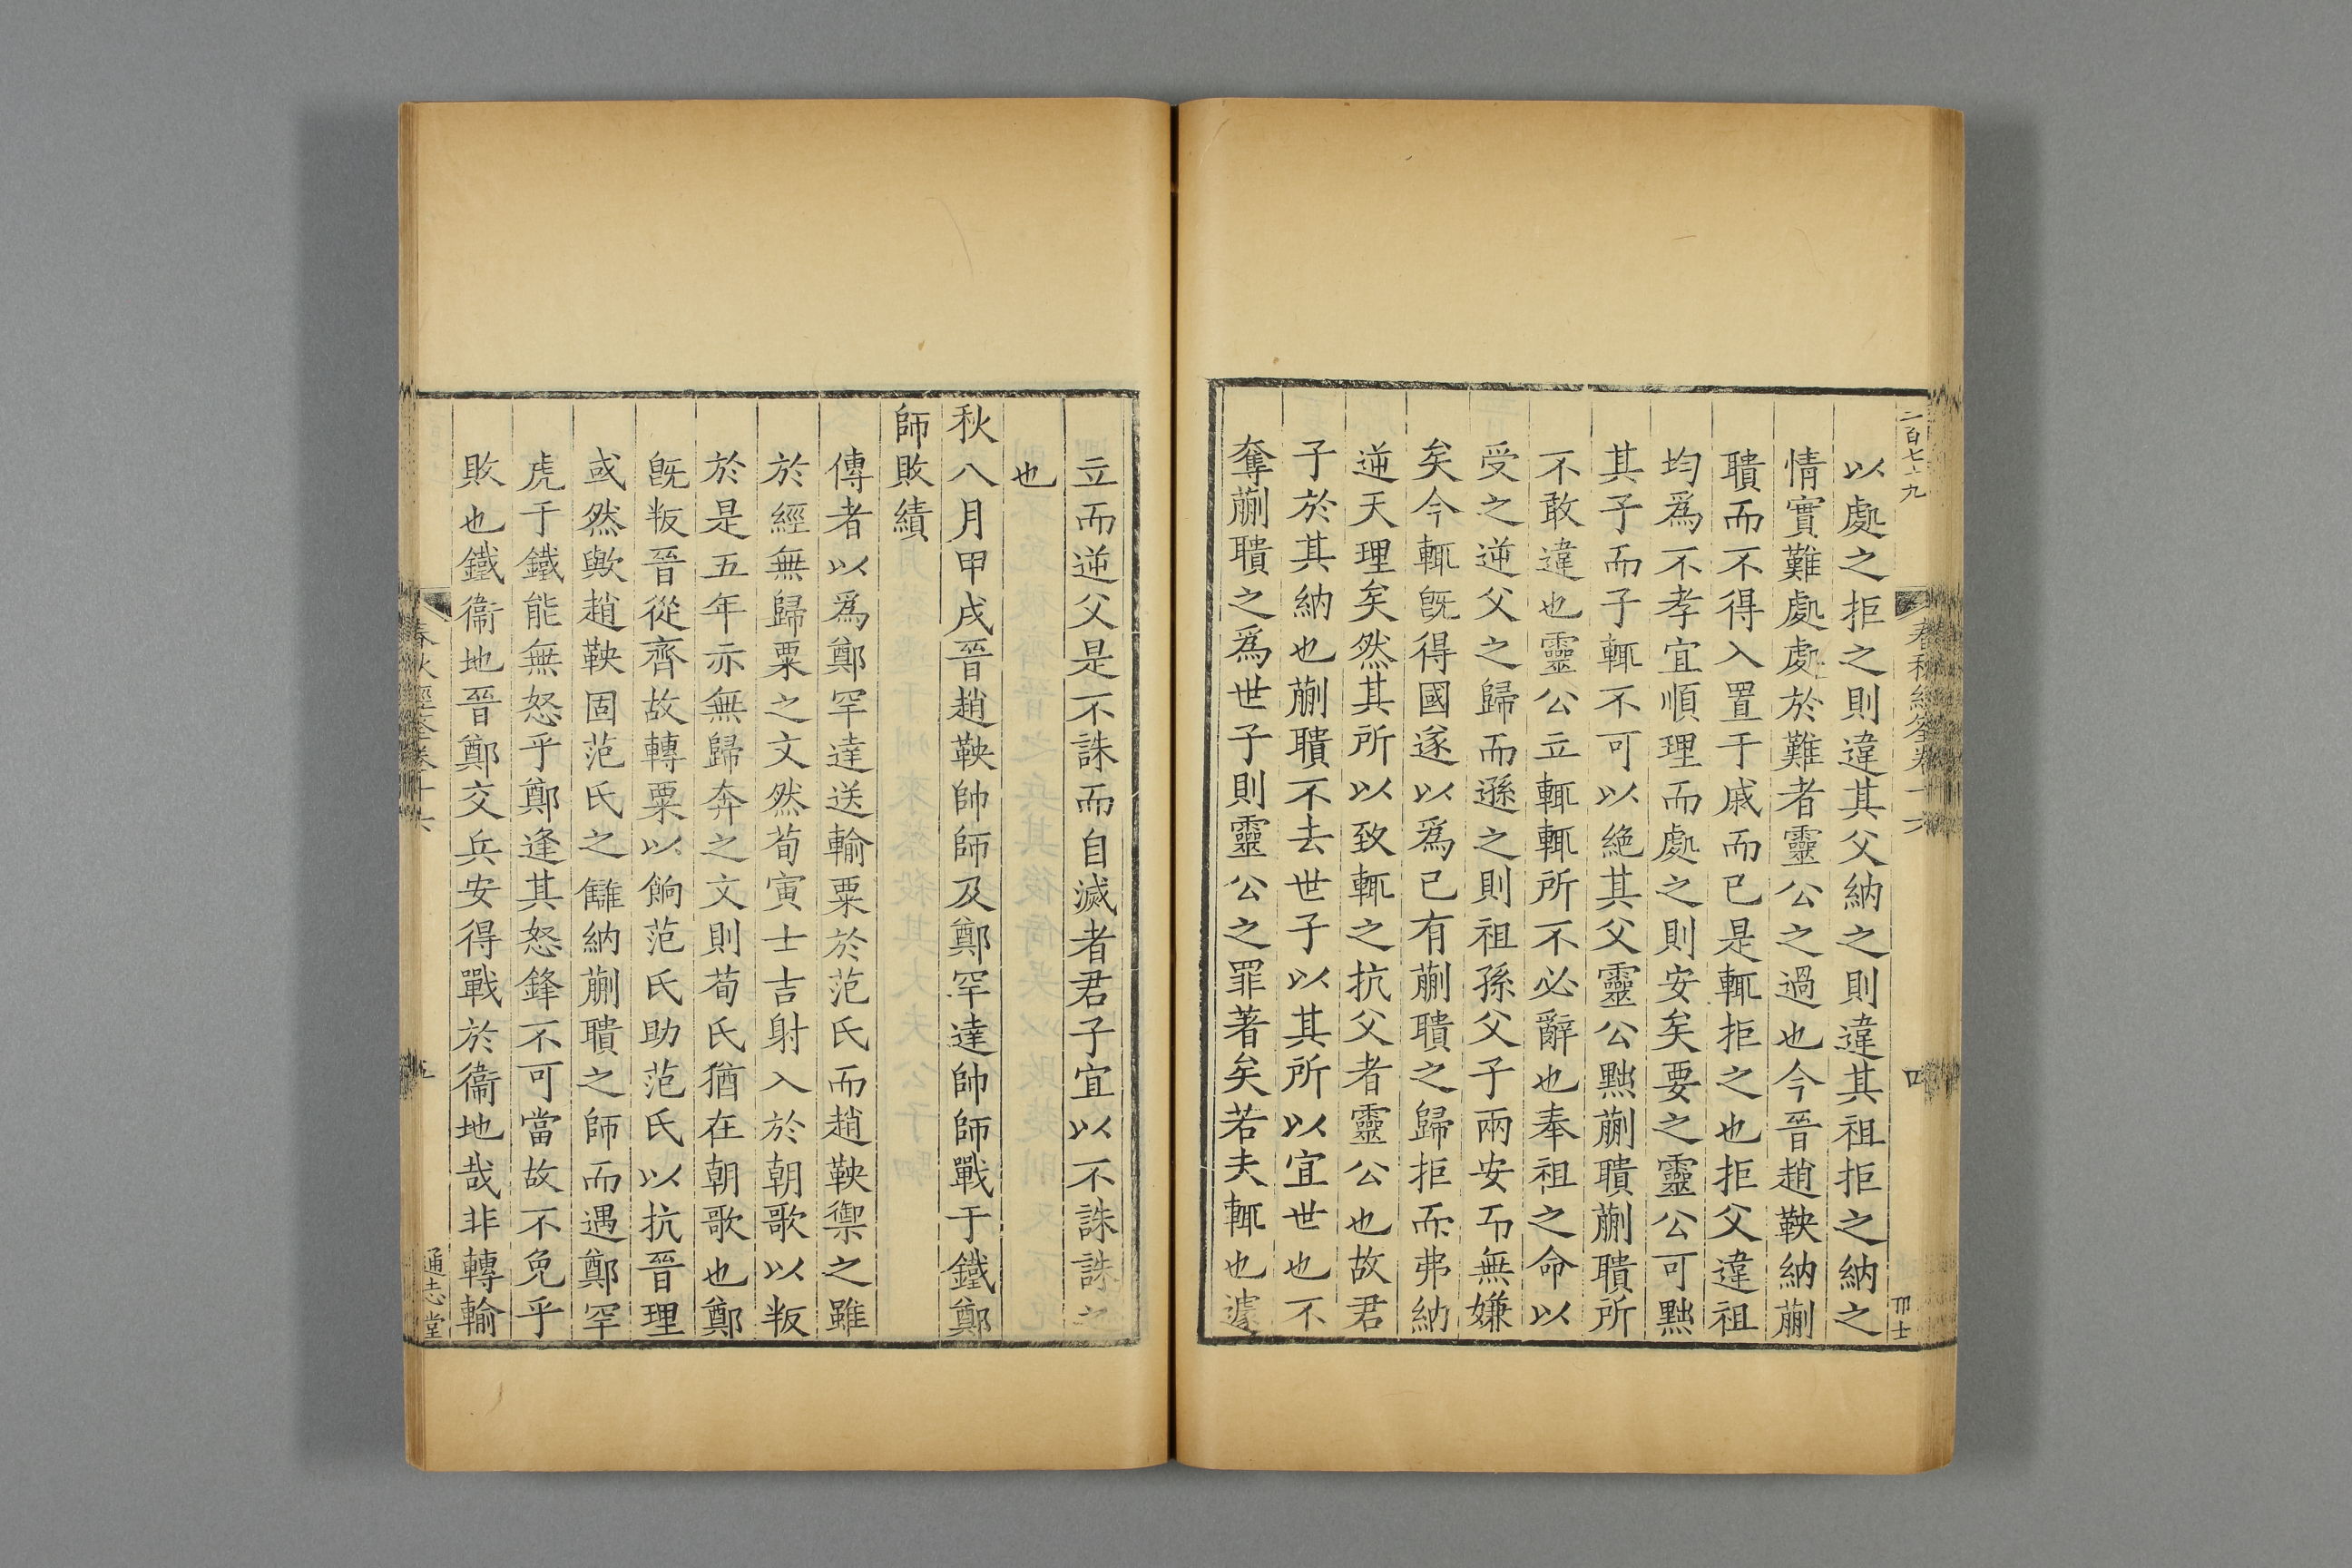 二百七十九
春秋經筌卷十六
四
以處之拒之則違其父納之則違其祖拒之納之
情實難處處於難者靈公之過也今晉趙鞅納蒯
聵而不得入置于戚而已是輒拒之也拒父違祖
均爲不孝宜順理而處之則安矣要之靈公可黜
其子而子輒不可以絶其父靈公黜蒯聵蒯聵所
不敢違也靈公立輒輒所不必辭也奉祖之命以
受之逆父之歸而遜之則祖孫父子兩安而無嫌
矣今輒旣得國遂以爲己有蒯聵之歸拒而弗納
逆天理矣然其所以致輒之抗父者靈公也故君
子於其納也蒯聵不去世子以其所以宜世也不
奪蒯聵之爲世子則靈公之罪著矣若夫輒也遽
立而逆父是不誅而自滅者君子宜以不誅誅之
也
秋八月甲戌晉趙鞅帥師及鄭罕達帥師戰于鐵鄭
師敗績
傳者以爲鄭罕達送輸粟於范氏而趙鞅禦之雖
於經無歸粟之文然荀寅士吉射入於朝歌以叛
於是五年亦無歸奔之文則荀氏猶在朝歌也鄭
旣叛晉從齊故轉粟以餉范氏助范氏以抗晉理
或然歟趙鞅固范氏之讎納蒯聵之師而遇鄭罕
虎于鐵能無怒乎鄭逢其怒鋒不可當故不免乎
敗也鐵衞地晉鄭交兵安得戰於衞地哉非轉輸
春秋經筌卷十六
五
通志堂